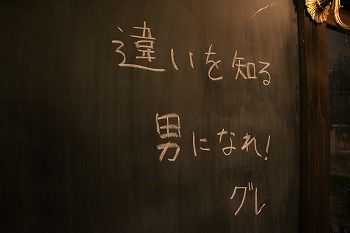 違いを知る
男になれ!
グレ